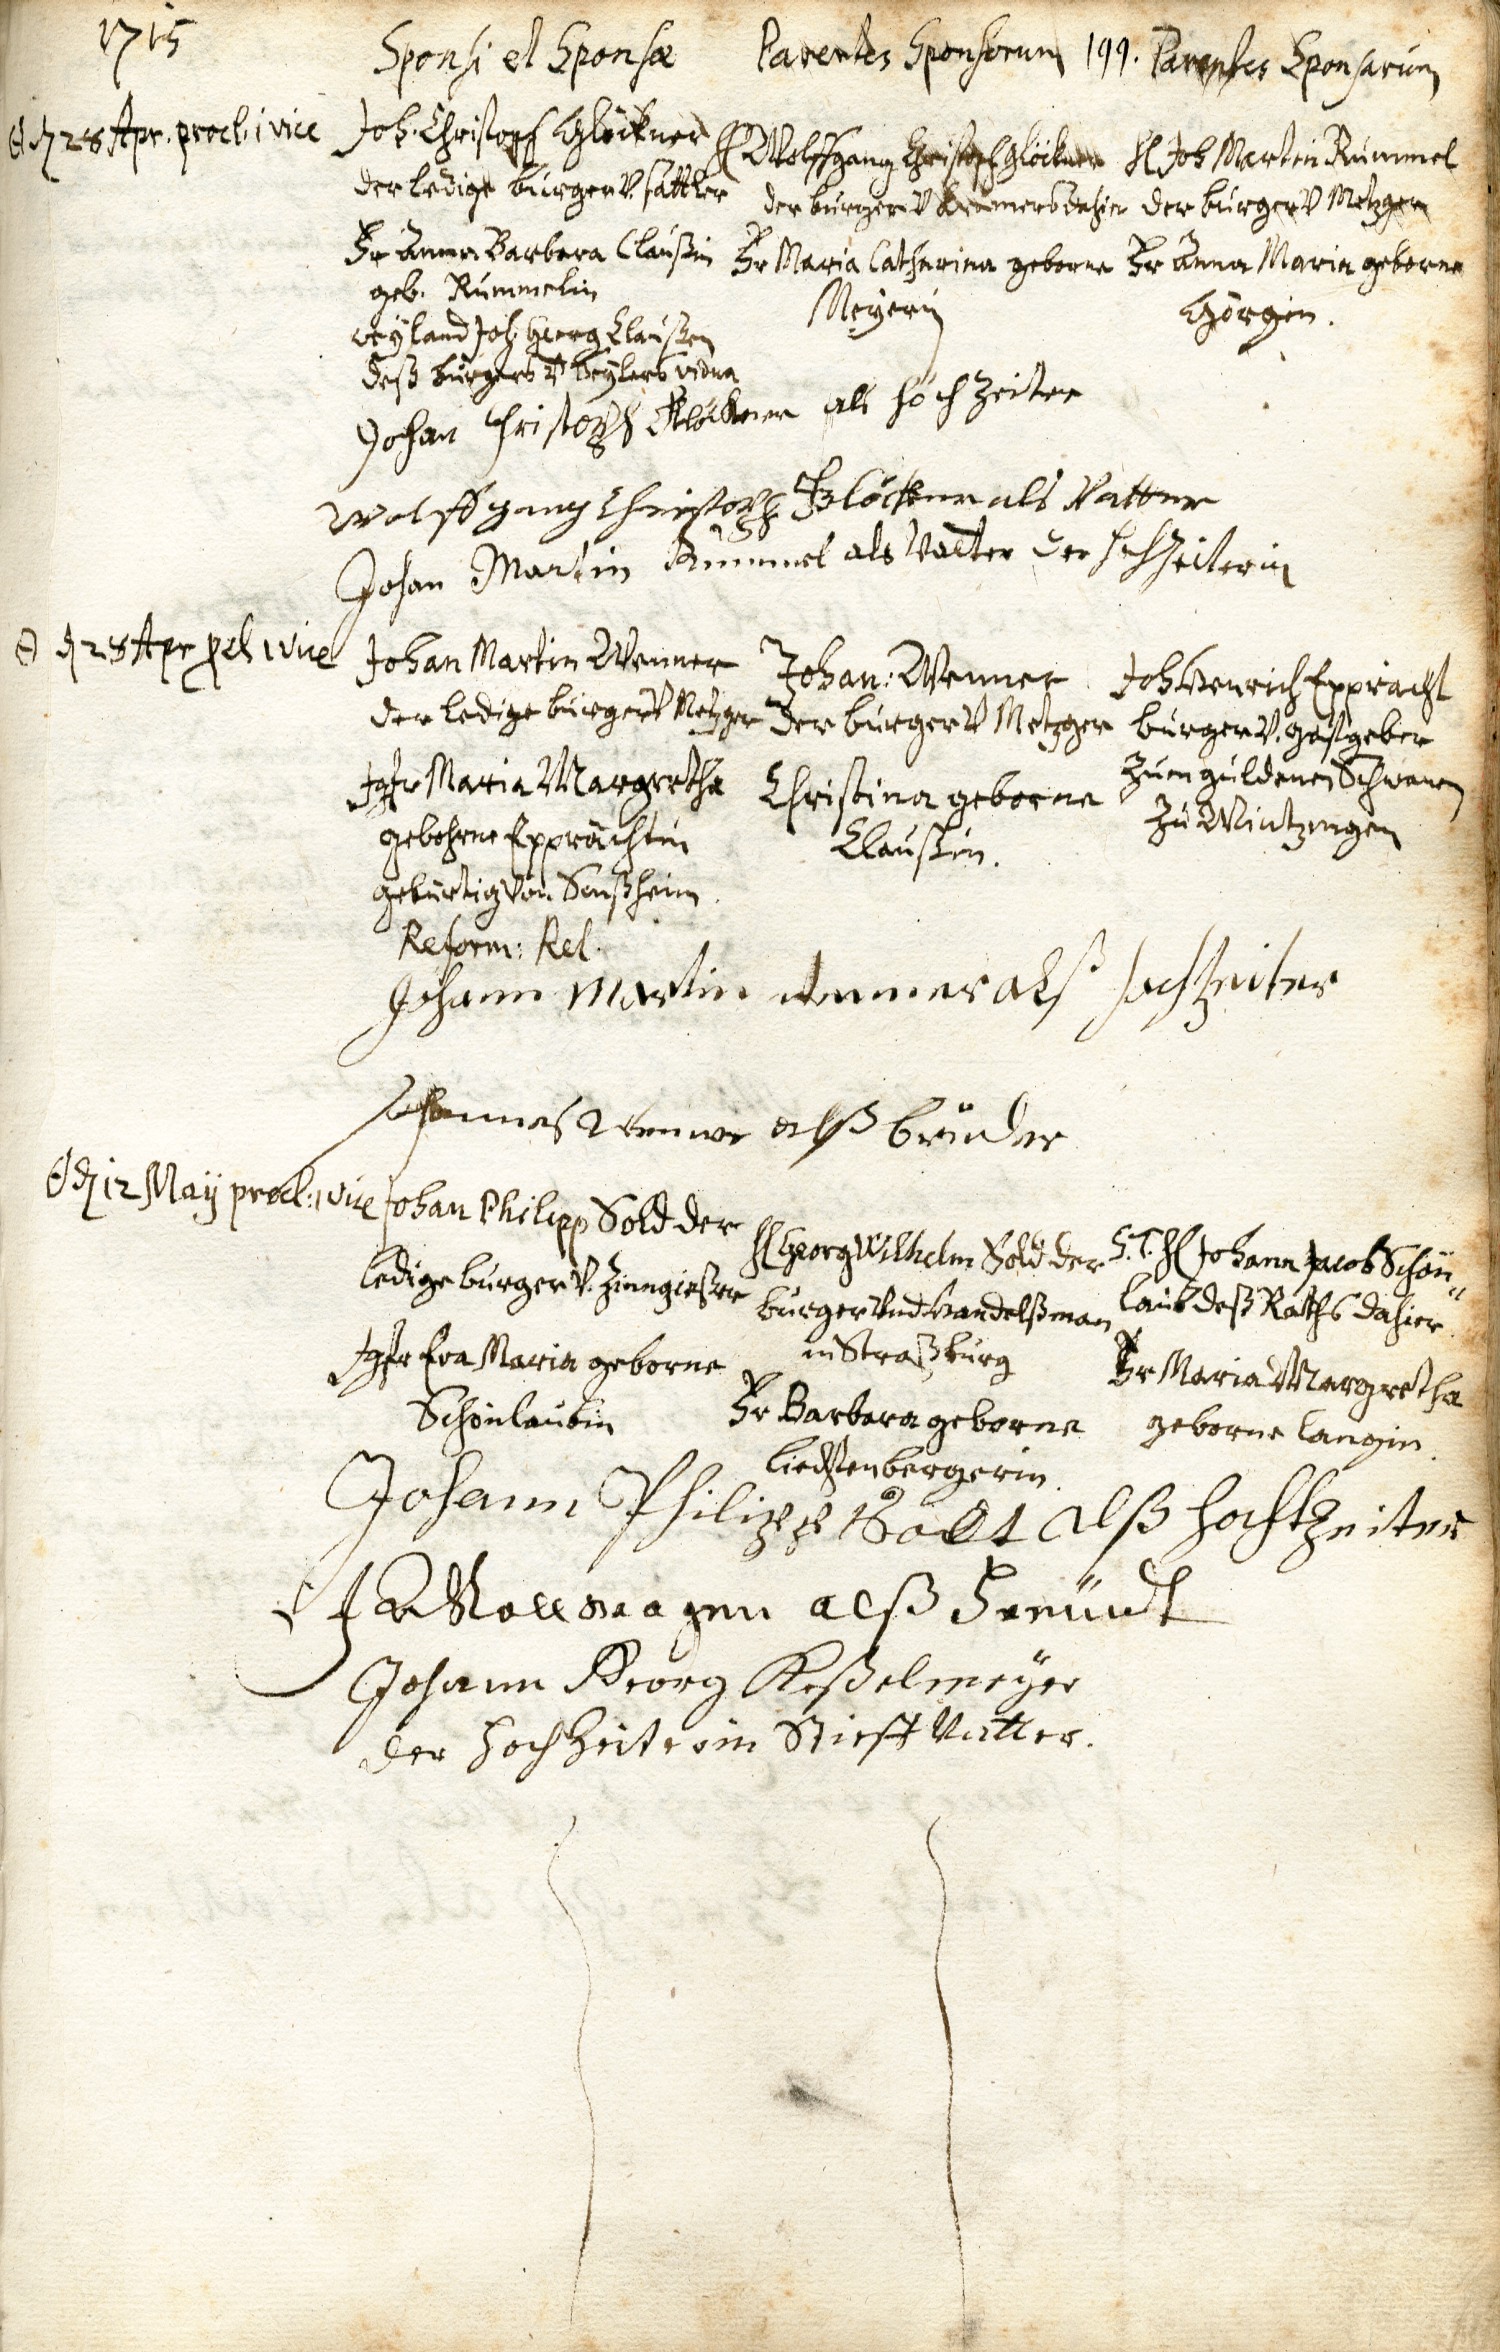 1715
Sponsi et Sponsæ
Parentes Sponsorum
199.
Parentes Sponsarum
d 28 Apr. procl. 1 vice
Joh. Christoph Glöckner
der ledige burger v. sattler
Fr Anna Barbara Claußin
geb. Rummelin
weyland Joh. Georg Claußen
deß burgers v. vidua
H Wolffgang Christoph Glöckner
der burger v dahier
Fr Maria Catharina geborne
Meyerin
H Joh Martin Rummel
der burger v Metzger
Fr Anna Maria geborne
Görgin.
Johan Christoph Glöckner als hochzeiter
Wolffgang Christoph Glöckner als Vatter
Johan Martin Rummel als Vatter der hochzeiterin
d 28 Apr pcl 1 vice
Johan Martin Wenner
der ledige burger v Metzger
Jgfr Maria Margretha
gebohrne Expprächtin
gebürtig von Sinßheim
Reform: Rel.
Johan: Wenner
der burger v Metzger
Christina geborne
Claußin.
Joh Henrich Exppracht
burger v. gastgeber
zum guldenen Schwanen
zu Wintzingen
Johann Martin Wenner alß hochzeiter
Johannes Wenner alß bruder
d 12 May procl: 1 vice
Johan Philipp Sold der
ledige burger v. Zinngießer
Jgfr Eva Maria geborne
Schönlaubin
H Georg Wilhelm Sold der
burger und handelßman
in Straßburg
Fr Barbara geborne
Liechtenbergerin
S.T. H Johann Jacob Schön"
laub deß Raths dahier
Fr Maria Margretha
geborne Langin.
Johann Philipp Soldt alß hochtzeiter
alß Freündt
Johann Georg Keßelmeyer
der hochzeiterin Stieff Vatter.